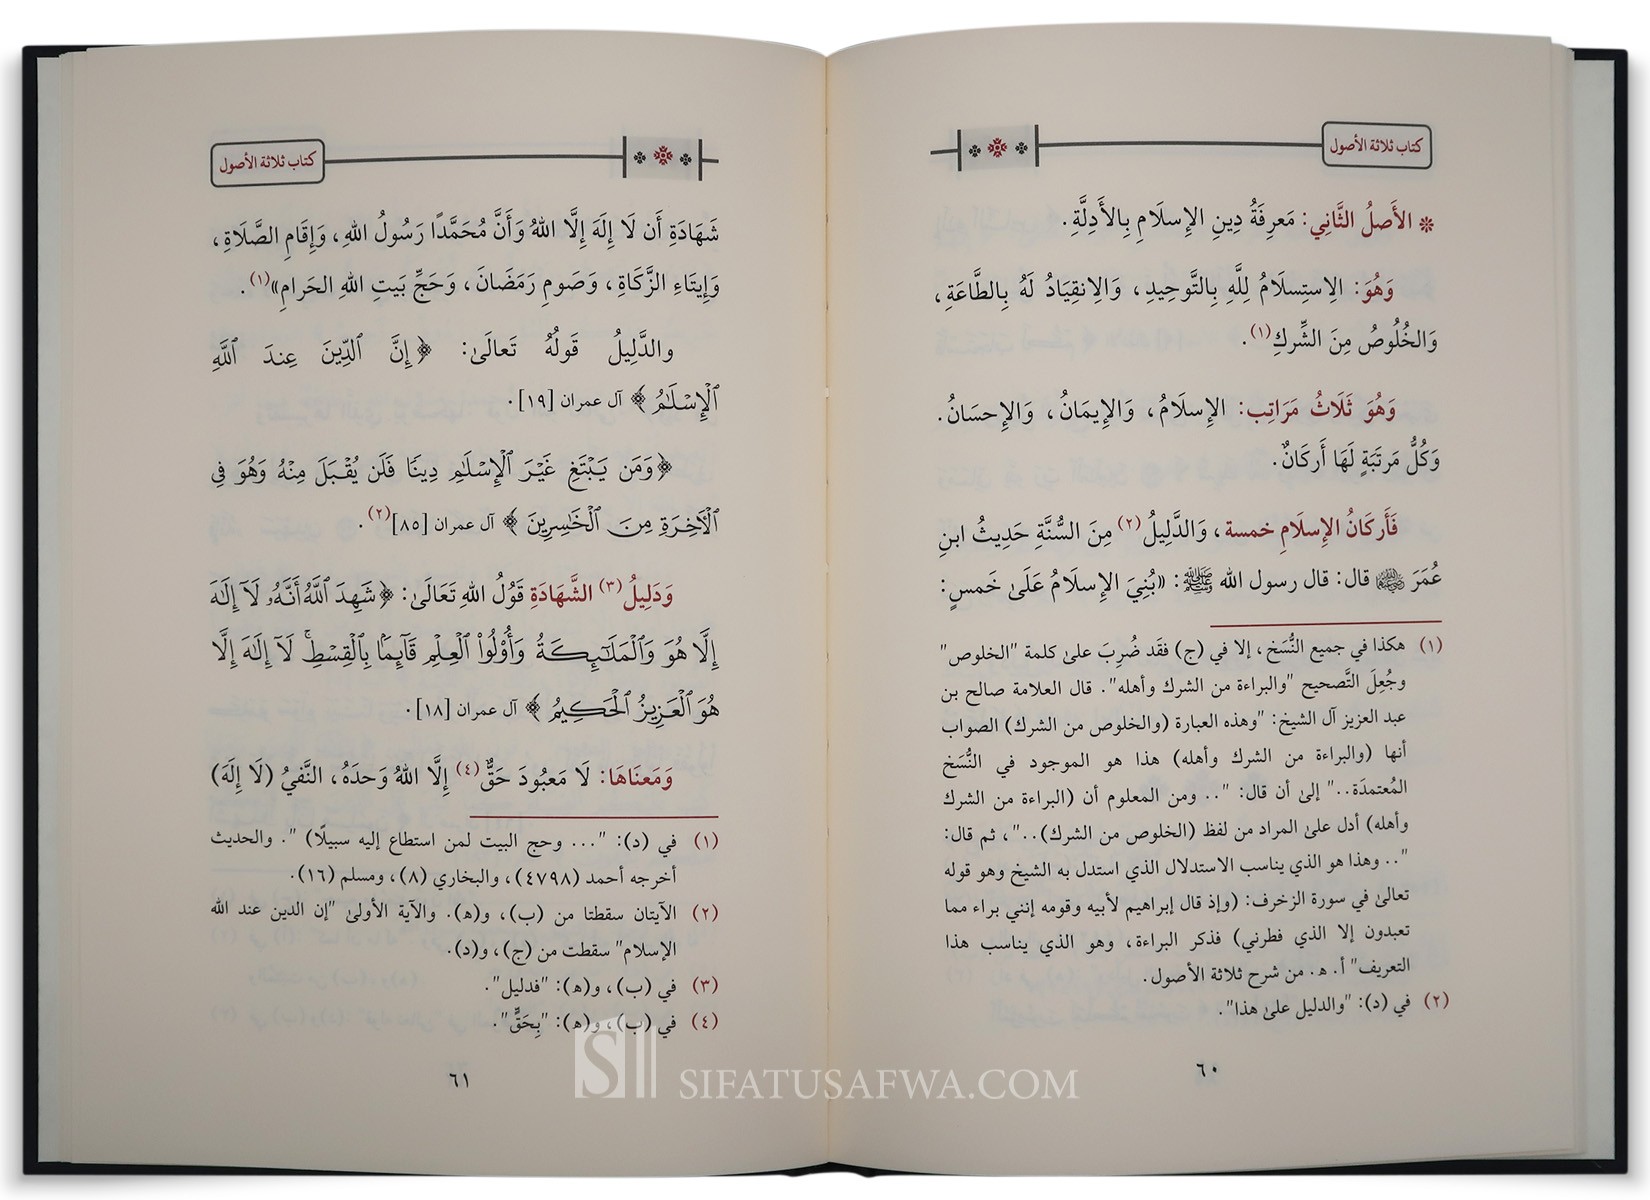 كتاب ثلاثة الأصول
❊ الأَصلُ الثَّانِي: مَعرِفَةُ دِينِ الإِسلَامِ بِالأَدِلَّةِ.
وَهُوَ: الِاستِسلَامُ لِلَّهِ بِالتَّوحِيدِ، وَالِانقِيَادُ لَهُ بِالطَّاعَةِ،
وَالخُلُوصُ مِنَ الشِّركِ(١).
وَهُوَ ثَلَاثُ مَرَاتِب: الإِسلَامُ، وَالإِيمَانُ، وَالإِحسَانُ.
وَكُلُّ مَرتَبَةٍ لَهَا أَركَانٌ.
فَأَركَانُ الإِسلَامِ خمسة، وَالدَّلِيلُ(٢) مِنَ السُّنَّةِ حَدِيثُ ابنِ
عُمَرَ ﷺ قال: قال رسول الله ﷺ: «بُنِيَ الإِسلَامُ عَلَىٰ خَمسٍ:
(١) هكذا في جميع النُّسَخ، إلا في (ج) فقَد ضُرِبَ علىٰ كلمة "الخلوص"
وجُعِلَ التَّصحيح "والبراءة من الشرك وأهله". قال العلامة صالح بن
عبد العزيز آل الشيخ: "وهذه العبارة (والخلوص من الشرك) الصواب
أنها (والبراءة من الشرك وأهله) هذا هو الموجود في النُّسَخ
المُعتمدَة.." إلىٰ أن قال: ".. ومن المعلوم أن (البراءة من الشرك
وأهله) أدل علىٰ المراد من لفظ (الخلوص من الشرك)..."، ثم قال:
".. وهذا هو الذي يناسب الاستدلال الذي استدل به الشيخ وهو قوله
تعالىٰ في سورة الزخرف: (وإذ قال إبراهيم لأبيه وقومه إنني براء مما
تعبدون إلا الذي فطرني) فذكر البراءة، وهو الذي يناسب هذا
التعريف" أ. هـ. من شرح ثلاثة الأصول.
(٢) في (د): "والدليل علىٰ هذا".
٦٠
كتاب ثلاثة الأصول
شَهَادَةِ أَن لَا إِلَهَ إِلَّا اللهُ وَأَنَّ مُحَمَّدًا رَسُولُ اللهِ، وَإِقَامِ الصَّلَاةِ،
وَإِيتَاءِ الزَّكَاةِ، وَصَومِ رَمَضَانَ، وَحَجِّ بَيتِ اللهِ الحَرامِ»(١).
والدَّلِيلُ قَولُهُ تَعَالَىٰ: ﴿إِنَّ ٱلدِّينَ عِندَ ٱللَّهِ
ٱلْإِسْلَٰمُ﴾ آل عمران [١٩].
﴿وَمَن يَبْتَغِ غَيْرَ ٱلْإِسْلَٰمِ دِينًا فَلَن يُقْبَلَ مِنْهُ وَهُوَ فِى
ٱلْأَخِرَةِ مِنَ ٱلْخَٰسِرِينَ﴾ آل عمران [٨٥](٢).
وَدَلِيلُ(٣) الشَّهَادَةِ قَولُ اللهِ تَعَالَىٰ: ﴿شَهِدَ ٱللَّهُ أَنَّهُۥ لَآ إِلَٰهَ
إِلَّا هُوَ وَٱلْمَلَٰٓئِكَةُ وَأُو۟لُوا۟ ٱلْعِلْمِ قَآئِمًۢا بِٱلْقِسْطِ ۚ لَآ إِلَٰهَ إِلَّا
هُوَ ٱلْعَزِيزُ ٱلْحَكِيمُ﴾ آل عمران [١٨].
وَمَعنَاهَا: لَا مَعبُودَ حَقٌّ(٤) إِلَّا اللهُ وَحدَهُ، النَّفيُ (لَا إِلَهَ)
(١) في (د): "... وحج البيت لمن استطاع إليه سبيلًا) ". والحديث
أخرجه أحمد (٤٧٩٨)، والبخاري (٨)، ومسلم (١٦).
(٢) الآيتان سقطتا من (ب)، و(ه). والآية الأولىٰ "إن الدين عند الله
الإسلام" سقطت من (ج)، و(د).
(٣) في (ب)، و(ه): "فدليل".
(٤) في (ب)، و(ه): "بِحَقٍّ".
٦١
SIFATUSAFWA.COM